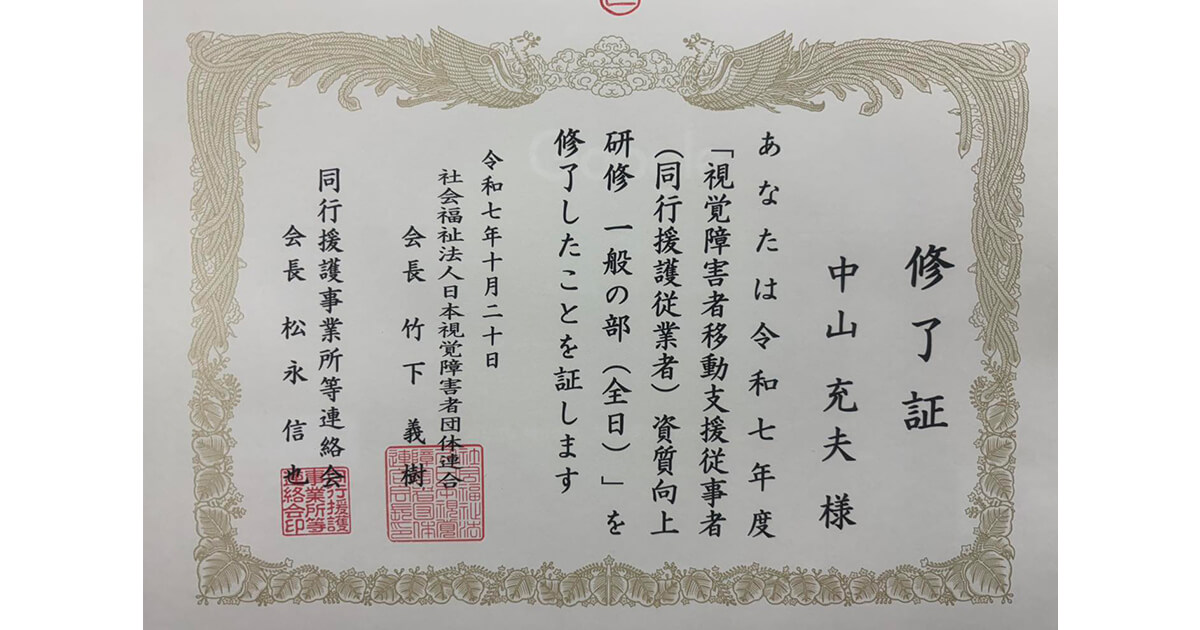 修了証
中山 充夫 様
あなたは令和七年度
「視覚障害者移動支援従事者
（同行援護従業者）資質向上
研修 一般の部（全日）」を
修了したことを証します
令和七年十月二十日
社会福祉法人日本視覚障害者団体連合
会長 竹下 義樹
同行援護事業所等連絡会
会長 松永 信也